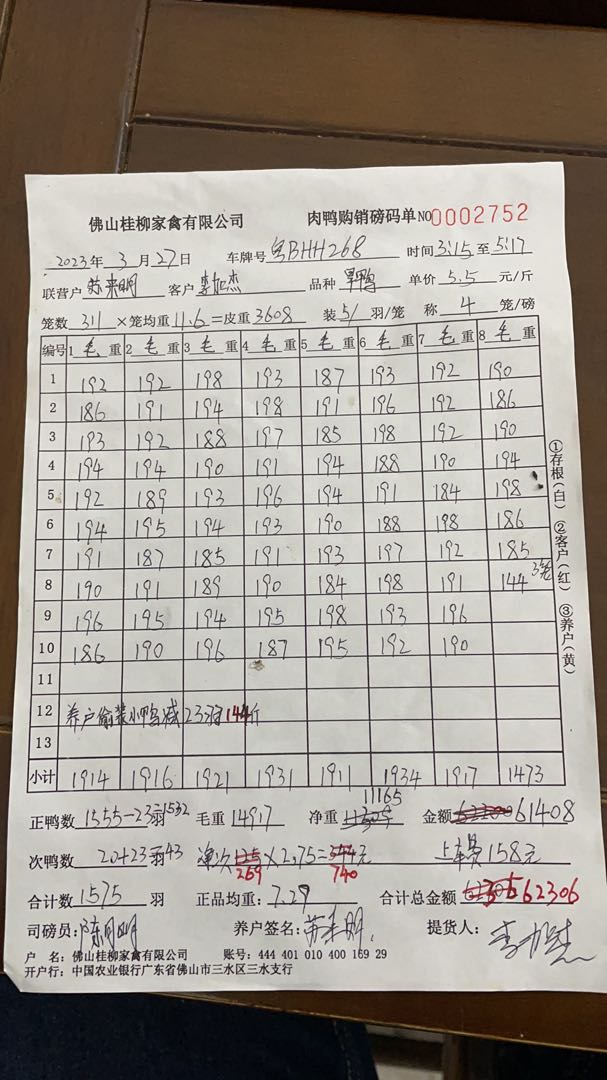 佛山桂柳家禽有限公司 肉鸭购销磅码单 NO 0002752
2023年 3 月 27 日 车牌号 粤BHH268 时间 3:15 至 5:17
联营户 苏来明 客户 李如杰 品种 单价 5.5 元/斤
笼数 311 ×笼均重 11.6 =皮重 3608 装 5/ 羽/笼 称 4 笼/磅
编号 1 毛 重 2 毛 重 3 毛 重 4 毛 重 5 毛 重 6 毛 重 7 毛 重 8 毛 重
1 192 192 198 193 187 193 192 190
2 186 191 194 198 191 196 192 186
3 193 192 188 197 185 198 192 190
4 194 194 190 191 194 188 190 194
5 192 189 193 196 194 191 184 198
6 194 195 194 193 190 188 198 186
7 191 187 185 191 193 197 192 185
8 190 191 189 190 184 198 191 144 3笼
9 196 195 194 195 198 193 196
10 186 190 196 187 195 192 190
11
12 养户偷装小鸭减23羽144斤
13
小计 1914 1916 1921 1931 1911 1934 1917 1473
正鸭数 1555-23羽1532 毛重 14917 净重 11165 金额 61408
次鸭数 20+23羽43 ×2.75= 元 上车费158元
269 740
合计数 1575 羽 正品均重: 7.29 合计总金额 62306
司磅员: 陈月明 养户签名: 苏来明 提货人: 李如杰
户 名: 佛山桂柳家禽有限公司 账号: 444 401 010 400 169 29
开户行: 中国农业银行广东省佛山市三水区三水支行
①存根(白) ②客户(红) ③养户(黄)